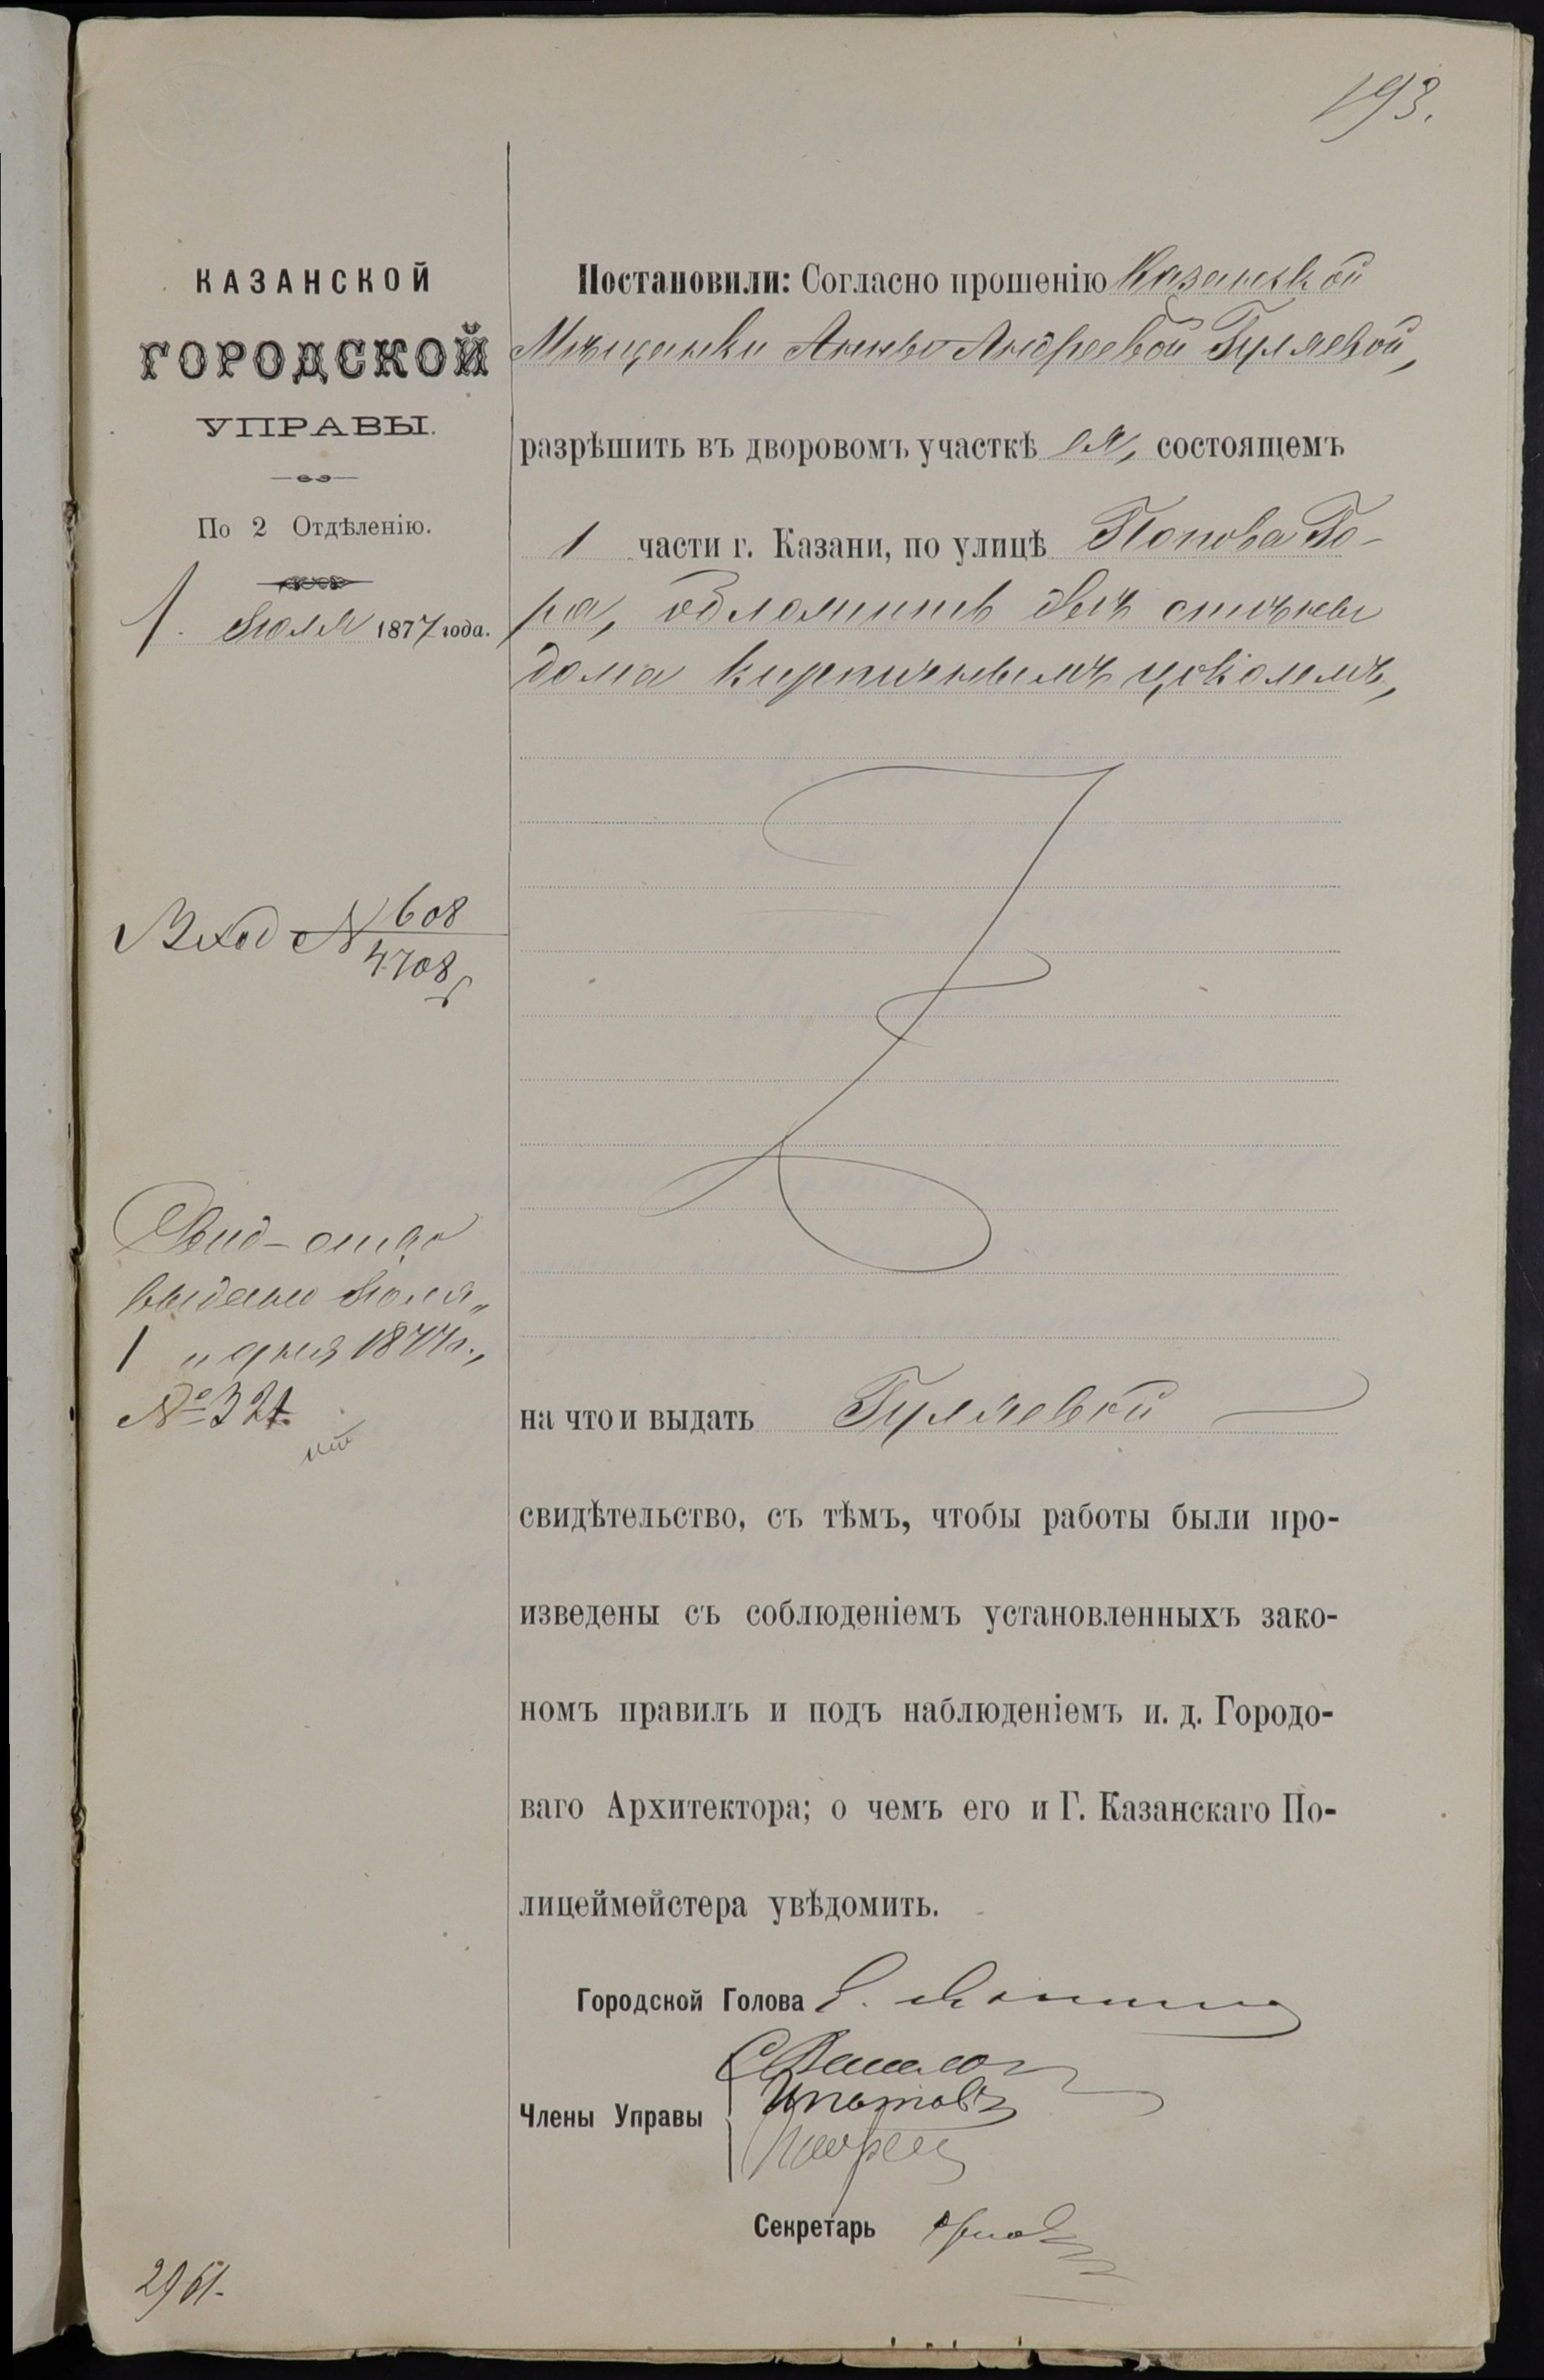 193.
КАЗАНСКОЙ
ГОРОДСКОЙ
УПРАВЫ.
По 2 Отдѣленію.
1. Іюля 1877 года.
Вход № 608
4708
Свид-отво
выдано Іюля „
1 „ дня 1877 г.,
№ 321.
2961.
Постановили: Согласно прошенію Казанской
Мѣщанки Анны Андреевой Гуляевой,
разрѣшить въ дворовомъ участкѣ ея, состоящемъ
1 части г. Казани, по улицѣ Попова Го-
ра, обложить двѣ стѣны
дома кирпичнымъ цоколемъ,
на что и выдать Гуляевой
свидѣтельство, съ тѣмъ, чтобы работы были про-
изведены съ соблюденіемъ установленныхъ зако-
номъ правилъ и подъ наблюденіемъ и. д. Городо-
ваго Архитектора; о чемъ его и Г. Казанскаго По-
лицеймейстера увѣдомить.
Городской Голова
Члены Управы
Ипатовъ
Секретарь